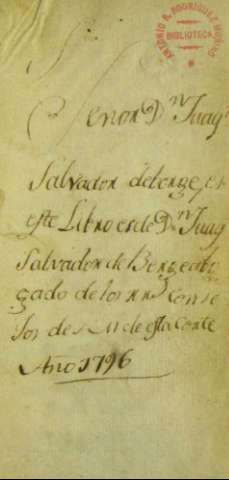 ANTONIO R. RODRIGUEZ MOÑINO
BIBLIOTECA
Señor Dn Juaqn
Salvador de
este Libro es de Dn Juaqn
Salvador de Benge abo
gado de los Conse
jos de S M de esta Corte
Año 1796